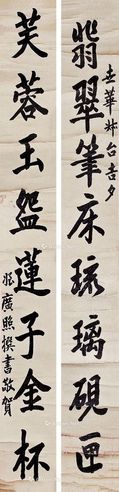 世華妹台吉夕
翡翠筆床琉璃硯匣
芙蓉玉盌蓮子金杯
張廣照撰書敬賀